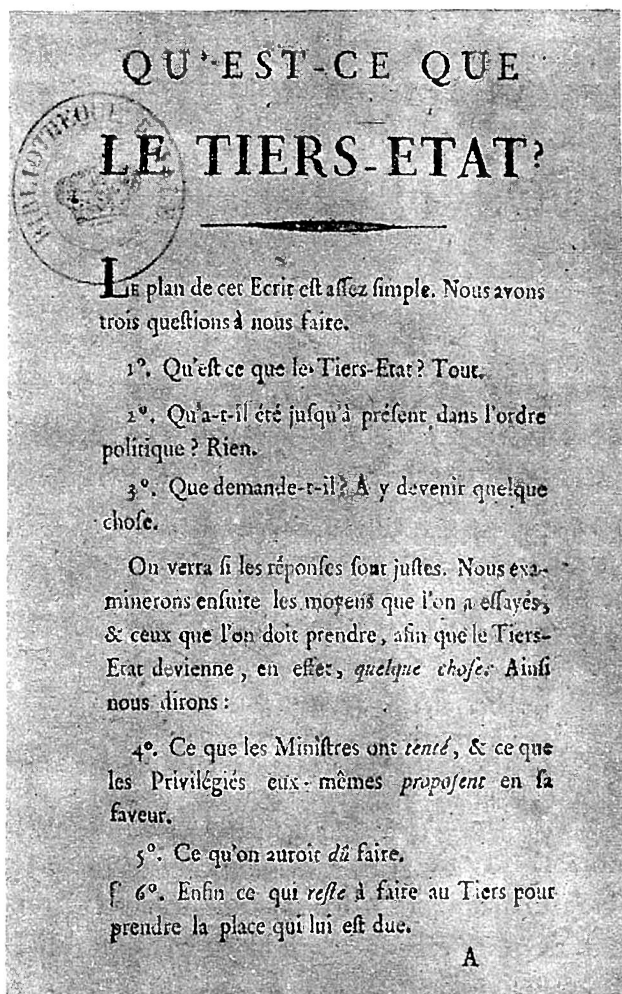 QU'EST-CE QUE
LE TIERS-ETAT?
BIBLIOTHEQUE
LE plan de cet Ecrit est assez simple. Nous avons
trois questions à nous faire.
1°. Qu'est ce que le Tiers-Etat? Tout.
2°. Qu'a-t-il été jusqu'à présent dans l'ordre
politique? Rien.
3°. Que demande-t-il? A y devenir quelque
chose.
On verra si les réponses sont justes. Nous exa-
minerons ensuite les moyens que l'on a essayés,
& ceux que l'on doit prendre, afin que le Tiers-
Etat devienne, en effet, quelque chose. Ainsi
nous dirons :
4°. Ce que les Ministres ont tenté, & ce que
les Privilégiés eux-mêmes proposent en sa
faveur.
5°. Ce qu'on auroit dû faire.
6°. Enfin ce qui reste à faire au Tiers pour
prendre la place qui lui est due.
A